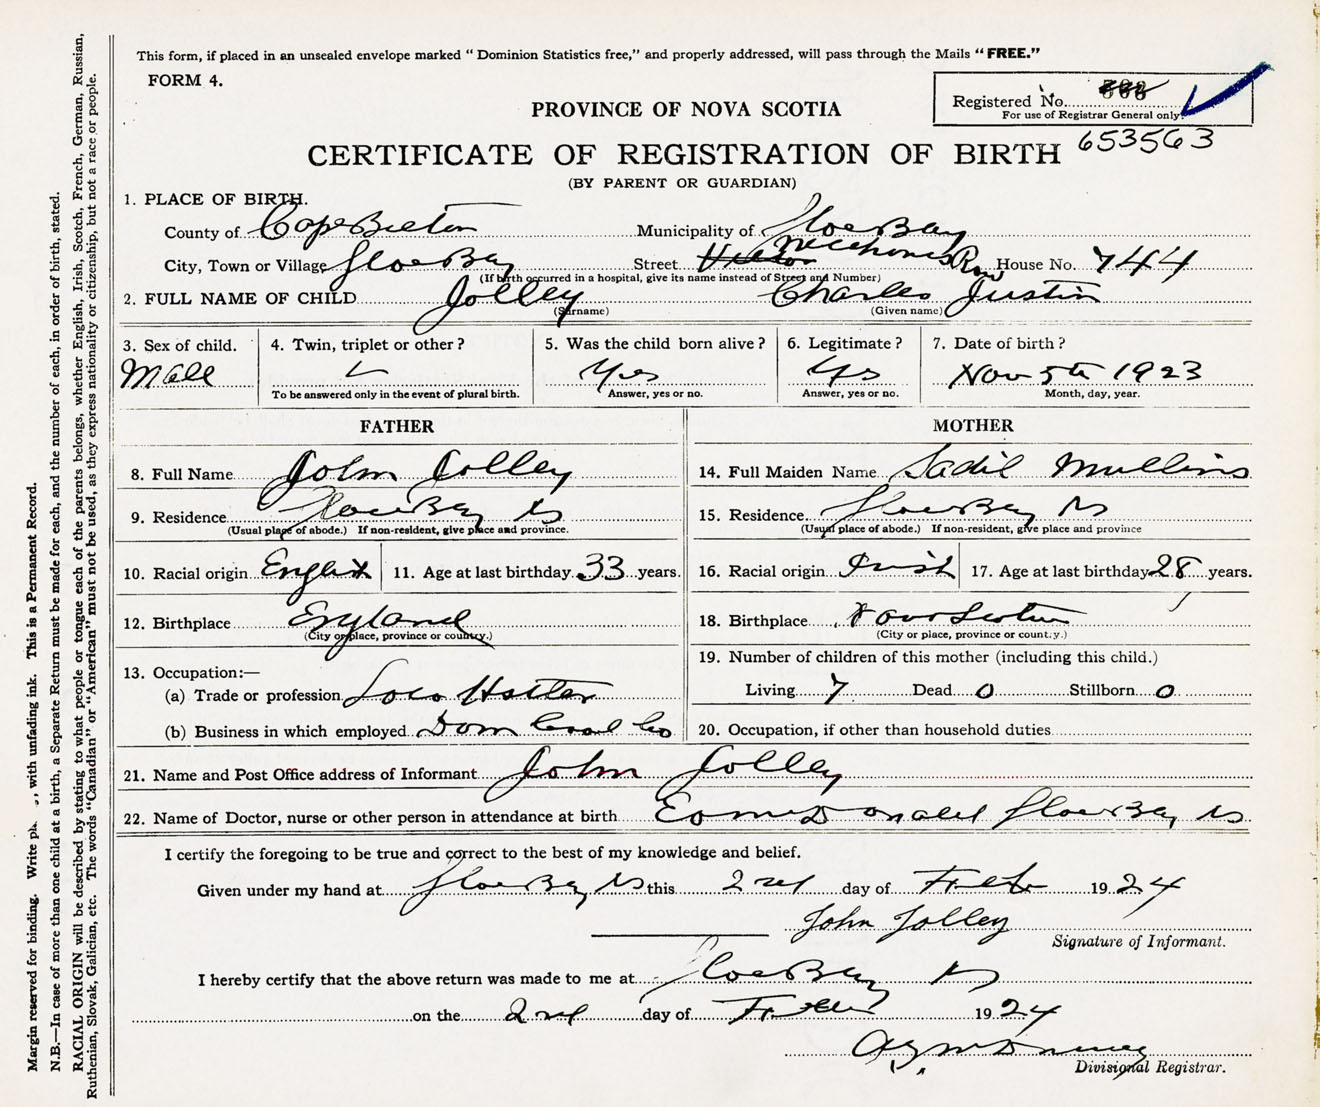 This form, if placed in an unsealed envelope marked "Dominion Statistics free," and properly addressed, will pass through the Mails "FREE."
FORM 4.
PROVINCE OF NOVA SCOTIA
Registered No.
For use of Registrar General only.
653563
CERTIFICATE OF REGISTRATION OF BIRTH
(BY PARENT OR GUARDIAN)
1. PLACE OF BIRTH.
County of Cape Breton Municipality of Glace Bay
City, Town or Village Glace Bay Street Row House No. 744
(If birth occurred in a hospital, give its name instead of Street and Number)
2. FULL NAME OF CHILD Jolley Charles Justin
(Surname) (Given name)
3. Sex of child. 4. Twin, triplet or other? 5. Was the child born alive? 6. Legitimate? 7. Date of birth?
Male Yes Yes Nov 5th 1923
To be answered only in the event of plural birth. Answer, yes or no. Answer, yes or no. Month, day, year.
FATHER
8. Full Name John Jolley
9. Residence Glace Bay NS
(Usual place of abode.) If non-resident, give place and province.
10. Racial origin English 11. Age at last birthday 33 years.
12. Birthplace England
(City or place, province or country.)
13. Occupation:—
(a) Trade or profession Loco
(b) Business in which employed Dom Coal Co
MOTHER
14. Full Maiden Name Mullins
15. Residence Glace Bay NS
(Usual place of abode.) If non-resident, give place and province
16. Racial origin Irish 17. Age at last birthday 28 years.
18. Birthplace Nova Scotia
(City or place, province or country.)
19. Number of children of this mother (including this child.)
Living 7 Dead 0 Stillborn 0
20. Occupation, if other than household duties
21. Name and Post Office address of Informant John Jolley
22. Name of Doctor, nurse or other person in attendance at birth Glace Bay NS
I certify the foregoing to be true and correct to the best of my knowledge and belief.
Given under my hand at Glace Bay NS this 2nd day of 1924
John Jolley
Signature of Informant.
I hereby certify that the above return was made to me at Glace Bay NS
on the 2nd day of 1924
Divisional Registrar.
Margin reserved for binding. Write with unfading ink. This is a Permanent Record.
N.B.—In case of more than one child at a birth, a Separate Return must be made for each, and the number of each, in order of birth, stated.
RACIAL ORIGIN will be described by stating to what people or tongue each of the parents belongs, whether English, Irish, Scotch, French, German, Russian,
Ruthenian, Slovak, Galician, etc. The words "Canadian" or "American" must not be used, as they express nationality or citizenship, but not a race or people.